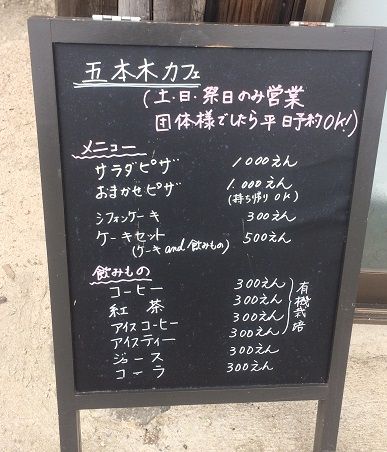 五本木カフェ
(土・日・祭日のみ営業
団体様でしたら平日予約OK!)
メニュー
サラダピザ 1000えん
おまかせピザ 1.000えん
(持ち帰りOK)
シフォンケーキ 300えん
ケーキセット 500えん
(ケーキand飲みもの)
飲みもの
コーヒー 300えん
紅茶 300えん
アイスコーヒー 300えん
アイスティー 300えん
有機栽培
ジュース 300えん
コーラ 300えん